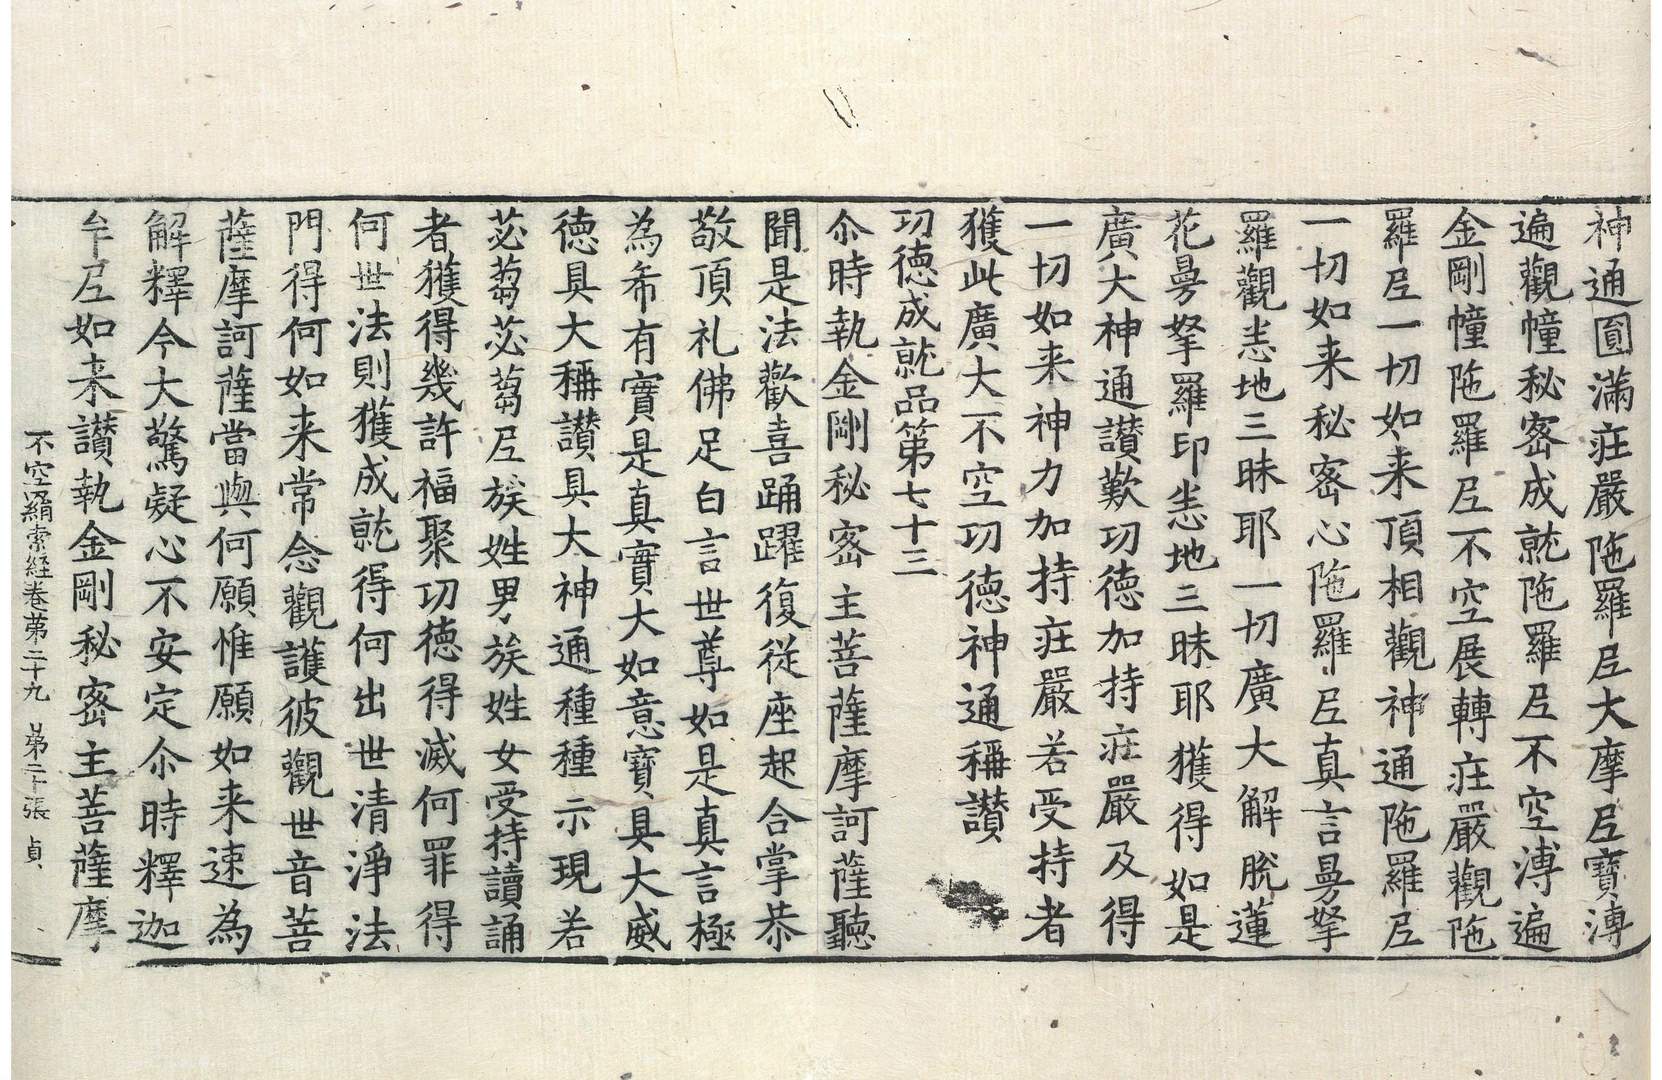 神通圓滿莊嚴陁羅尼大摩尼寶溥
遍觀幢秘密成就陁羅尼不空溥遍
金剛幢陁羅尼不空展轉莊嚴觀陁
羅尼一切如来頂相觀神通陁羅尼
一切如来秘密心陁羅尼真言曼拏
羅觀恚地三昧耶一切廣大解脫蓮
花曼拏羅印恚地三昧耶獲得如是
廣大神通讃歎功德加持莊嚴及得
一切如来神力加持莊嚴若受持者
獲此廣大不空功德神通稱讃
功德成就品第七十三
尒時執金剛秘密主菩薩摩訶薩聽
聞是法歡喜踊躍復從座起合掌恭
敬頂礼佛足白言世尊如是真言極
為希有實是真實大如意寶具大威
德具大稱讃具大神通種種示現若
苾蒭苾蒭尼族姓男族姓女受持讀誦
者獲得幾許福聚功德得滅何罪得
何世法則獲成就得何出世清淨法
門得何如来常念觀護彼觀世音菩
薩摩訶薩當與何願惟願如来速為
解釋今大驚疑心不安定尒時釋迦
牟尼如来讃執金剛秘密主菩薩摩
不空羂索経卷第二十九 第二十張 貞